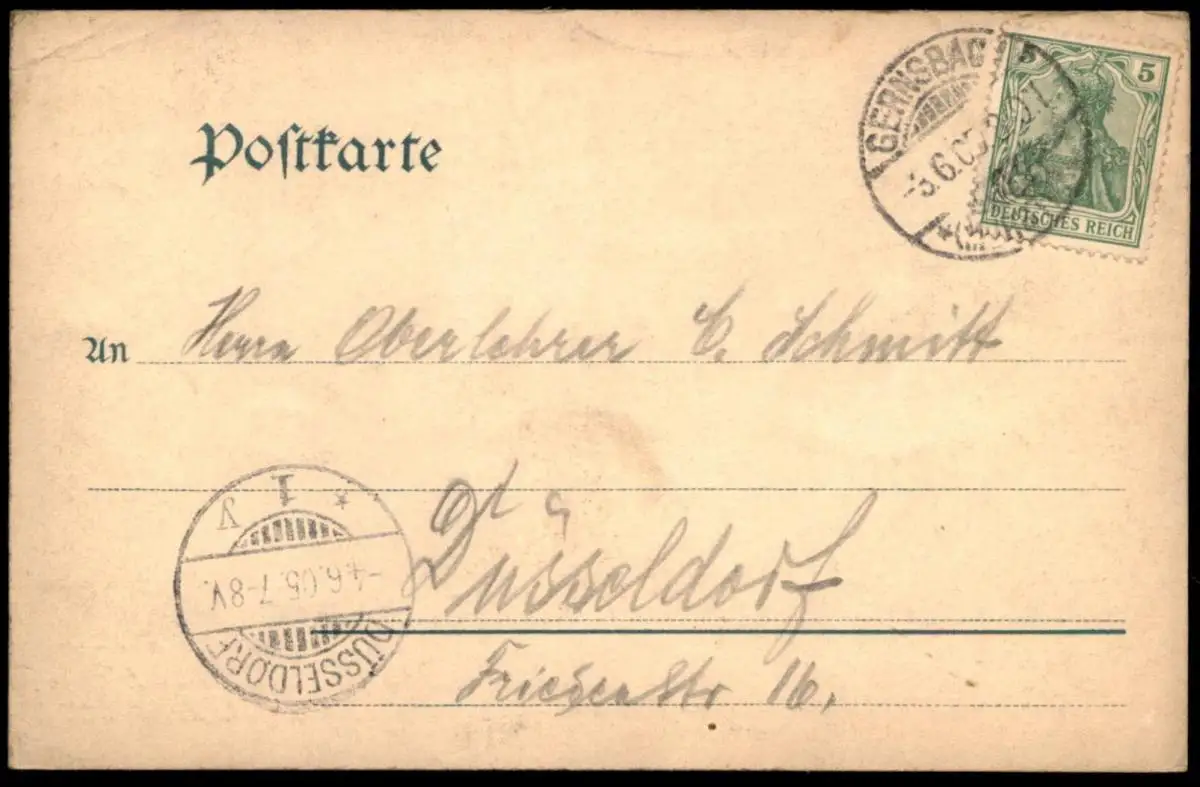 Postkarte
GERNSBACH
-3.6.05. 8-9N.
5 5
DEUTSCHES REICH
An Herrn Oberlehrer C. Schmitt
Düsseldorf
Friesenstr 16.
1 V
-4.6.05.7-8V.
DÜSSELDORF